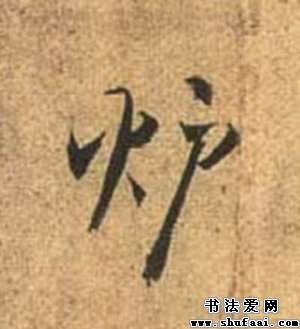 炉
书法爱网
www.shufaai.com